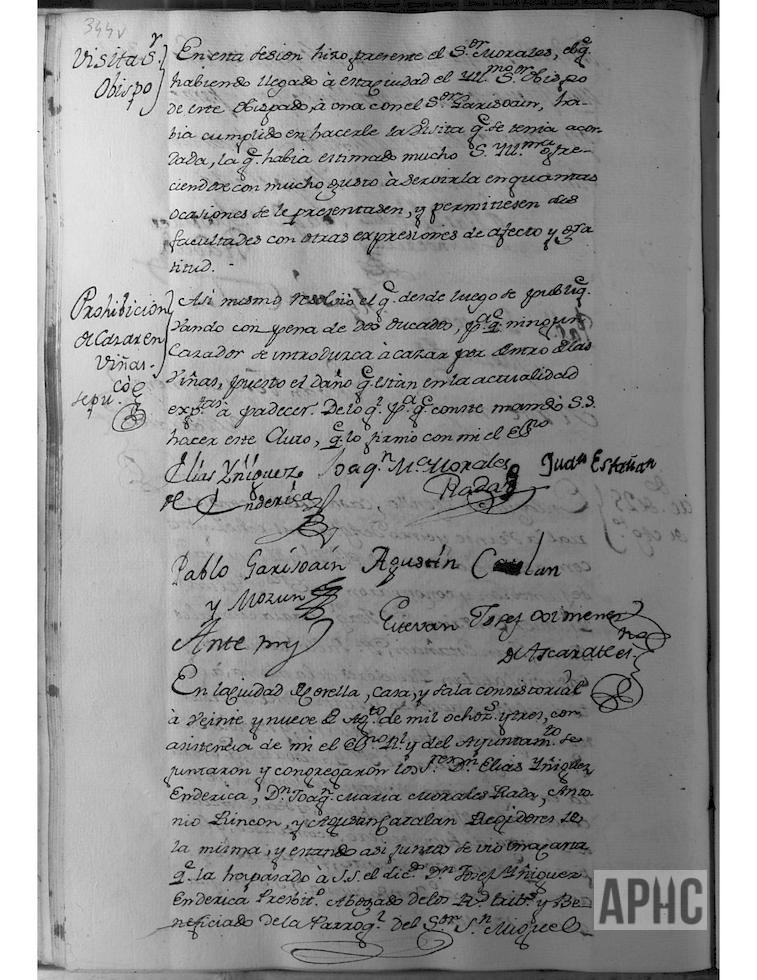 344v
Visita Sr.
Obispo
En esta sesion hizo presente el Sor. Morales, el q.
habiendo llegado à esta Ciudad el Yllmo. Sor. Obispo
de este Obispado, à una con el Sor. Garisoain, ha-
bia cumplido en hacerle la Visita qe. se tenia acor-
dada, la qe. habia estimado mucho S. Yllma. ofre-
ciendose con mucho gusto à servirla en quantas
ocasiones se le presentasen, y permitiesen sus
facultades con otras expresiones de afecto y gra
titud.
Prohibicion
de Cazar en
Viñas.
Asi mismo resolvio el qe. desde luego se publiq.
Vando con pena de dos ducados, pa. qe. ningun
Cazador se introduzca à cazar por dentro de las
Viñas, puesto el daño qe. estan en la actualidad
à padecer. De lo ql. pa. qe. conste mandò S.S.
hacer este Auto, qe. lo firmò con mi el Esno.
Elias Yñiguez
de Enderica
Joaqn. Ma. Morales
Rada
Juan Estañan
Pablo Garisoain
y Mozun
Agustin Catalan
Ante my
Estevan Josef Ximenez
de Ascarate es.no
En la Ciudad de Corella, Casa, y Sala Consistorial
à Veinte y nueve de Agto. de mil ochoz. y tres, con
asistencia de mi el Esno. Rl. y del Ayuntamto. se
juntaron y congregaron los Sres. Dn. Elias Yñiguez
Enderica, Dn. Joaqn. Maria Morales Rada, Anto
nio Rincon, y Agustin Catalan Regidores de
la misma, y estando asi juntos se vio una carta
qe. la ha pasado à S.S. el dicho Dn. Josef Yñiguez
Enderica Presbito. Abogado de los Rs. y Be
neficiado de la Parroql. del Sor. Sn. Miguel
APHC